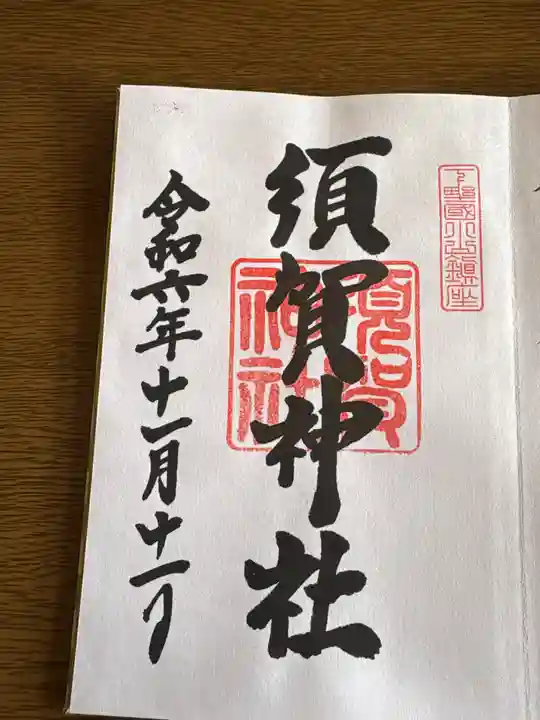 下野國小山鎮座
須賀神社
須賀神社
令和六年十一月十一日